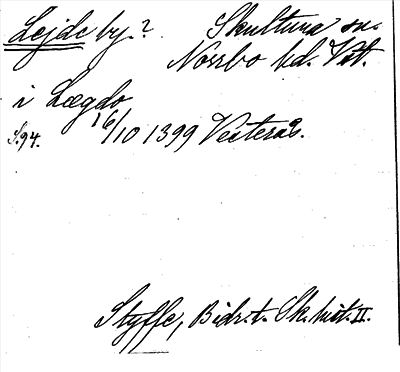 Lejde by.? Skultuna sn.
Norrbo hd. Vstm.
i Lægdo
S. 94. 16/10 1399 Vesterås.
Styffe, Bidr. t. Sk. hist. II.